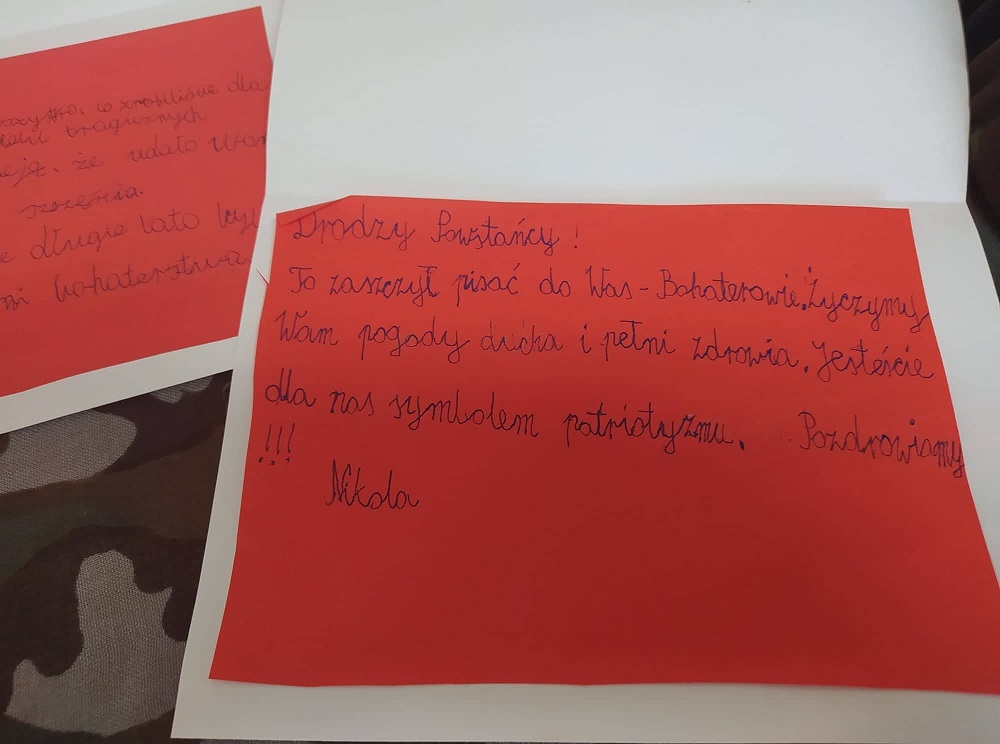 co zrobiliście dla
tragicznych
że udało Wam
szczęścia.
długie lato był
bohaterstwa
Drodzy Powstańcy!
To zaszczyt pisać do Was - Bohaterowie. Życzymy
Wam pogody ducha i pełni zdrowia. Jesteście
dla nas symbolem patriotyzmu. Pozdrowiamy
!!!
Nikola